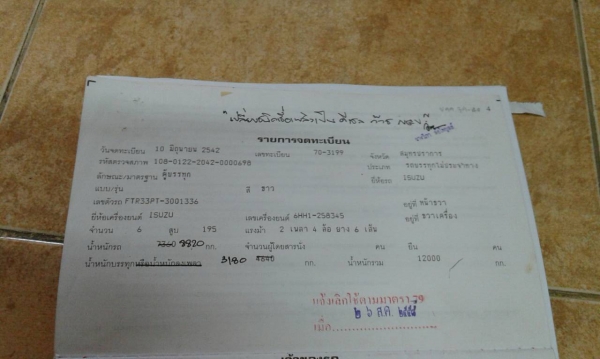 รายการจดทะเบียน
วันจดทะเบียน 10 มิถุนายน 2542 เลขทะเบียน 70-3199 จังหวัด สมุทรปราการ
รหัสตรวจสภาพ 108-0122-2042-0000698 ประเภท รถบรรทุกไม่ประจำทาง
ลักษณะ/มาตรฐาน ตู้บรรทุก ยี่ห้อรถ ISUZU
แบบ/รุ่น สี ขาว
เลขตัวรถ FTR33PT-3001336 อยู่ที่ หน้าขวา
ยี่ห้อเครื่องยนต์ ISUZU เลขเครื่องยนต์ 6HH1-258345 อยู่ที่ ขวาเครื่อง
จำนวน 6 สูบ 195 แรงม้า 2 เพลา 4 ล้อ ยาง 6 เส้น
น้ำหนักรถ 8820 กก. จำนวนผู้โดยสารนั่ง คน ยืน คน
น้ำหนักบรรทุกหรือน้ำหนักลงเพลา 3180 กก. น้ำหนักรวม 12000 กก.
แจ้งเลิกใช้ตามมาตรา 79
๒๖ ส.ค. ๒๕๕๘
เมื่อ
เจ้าของรถ